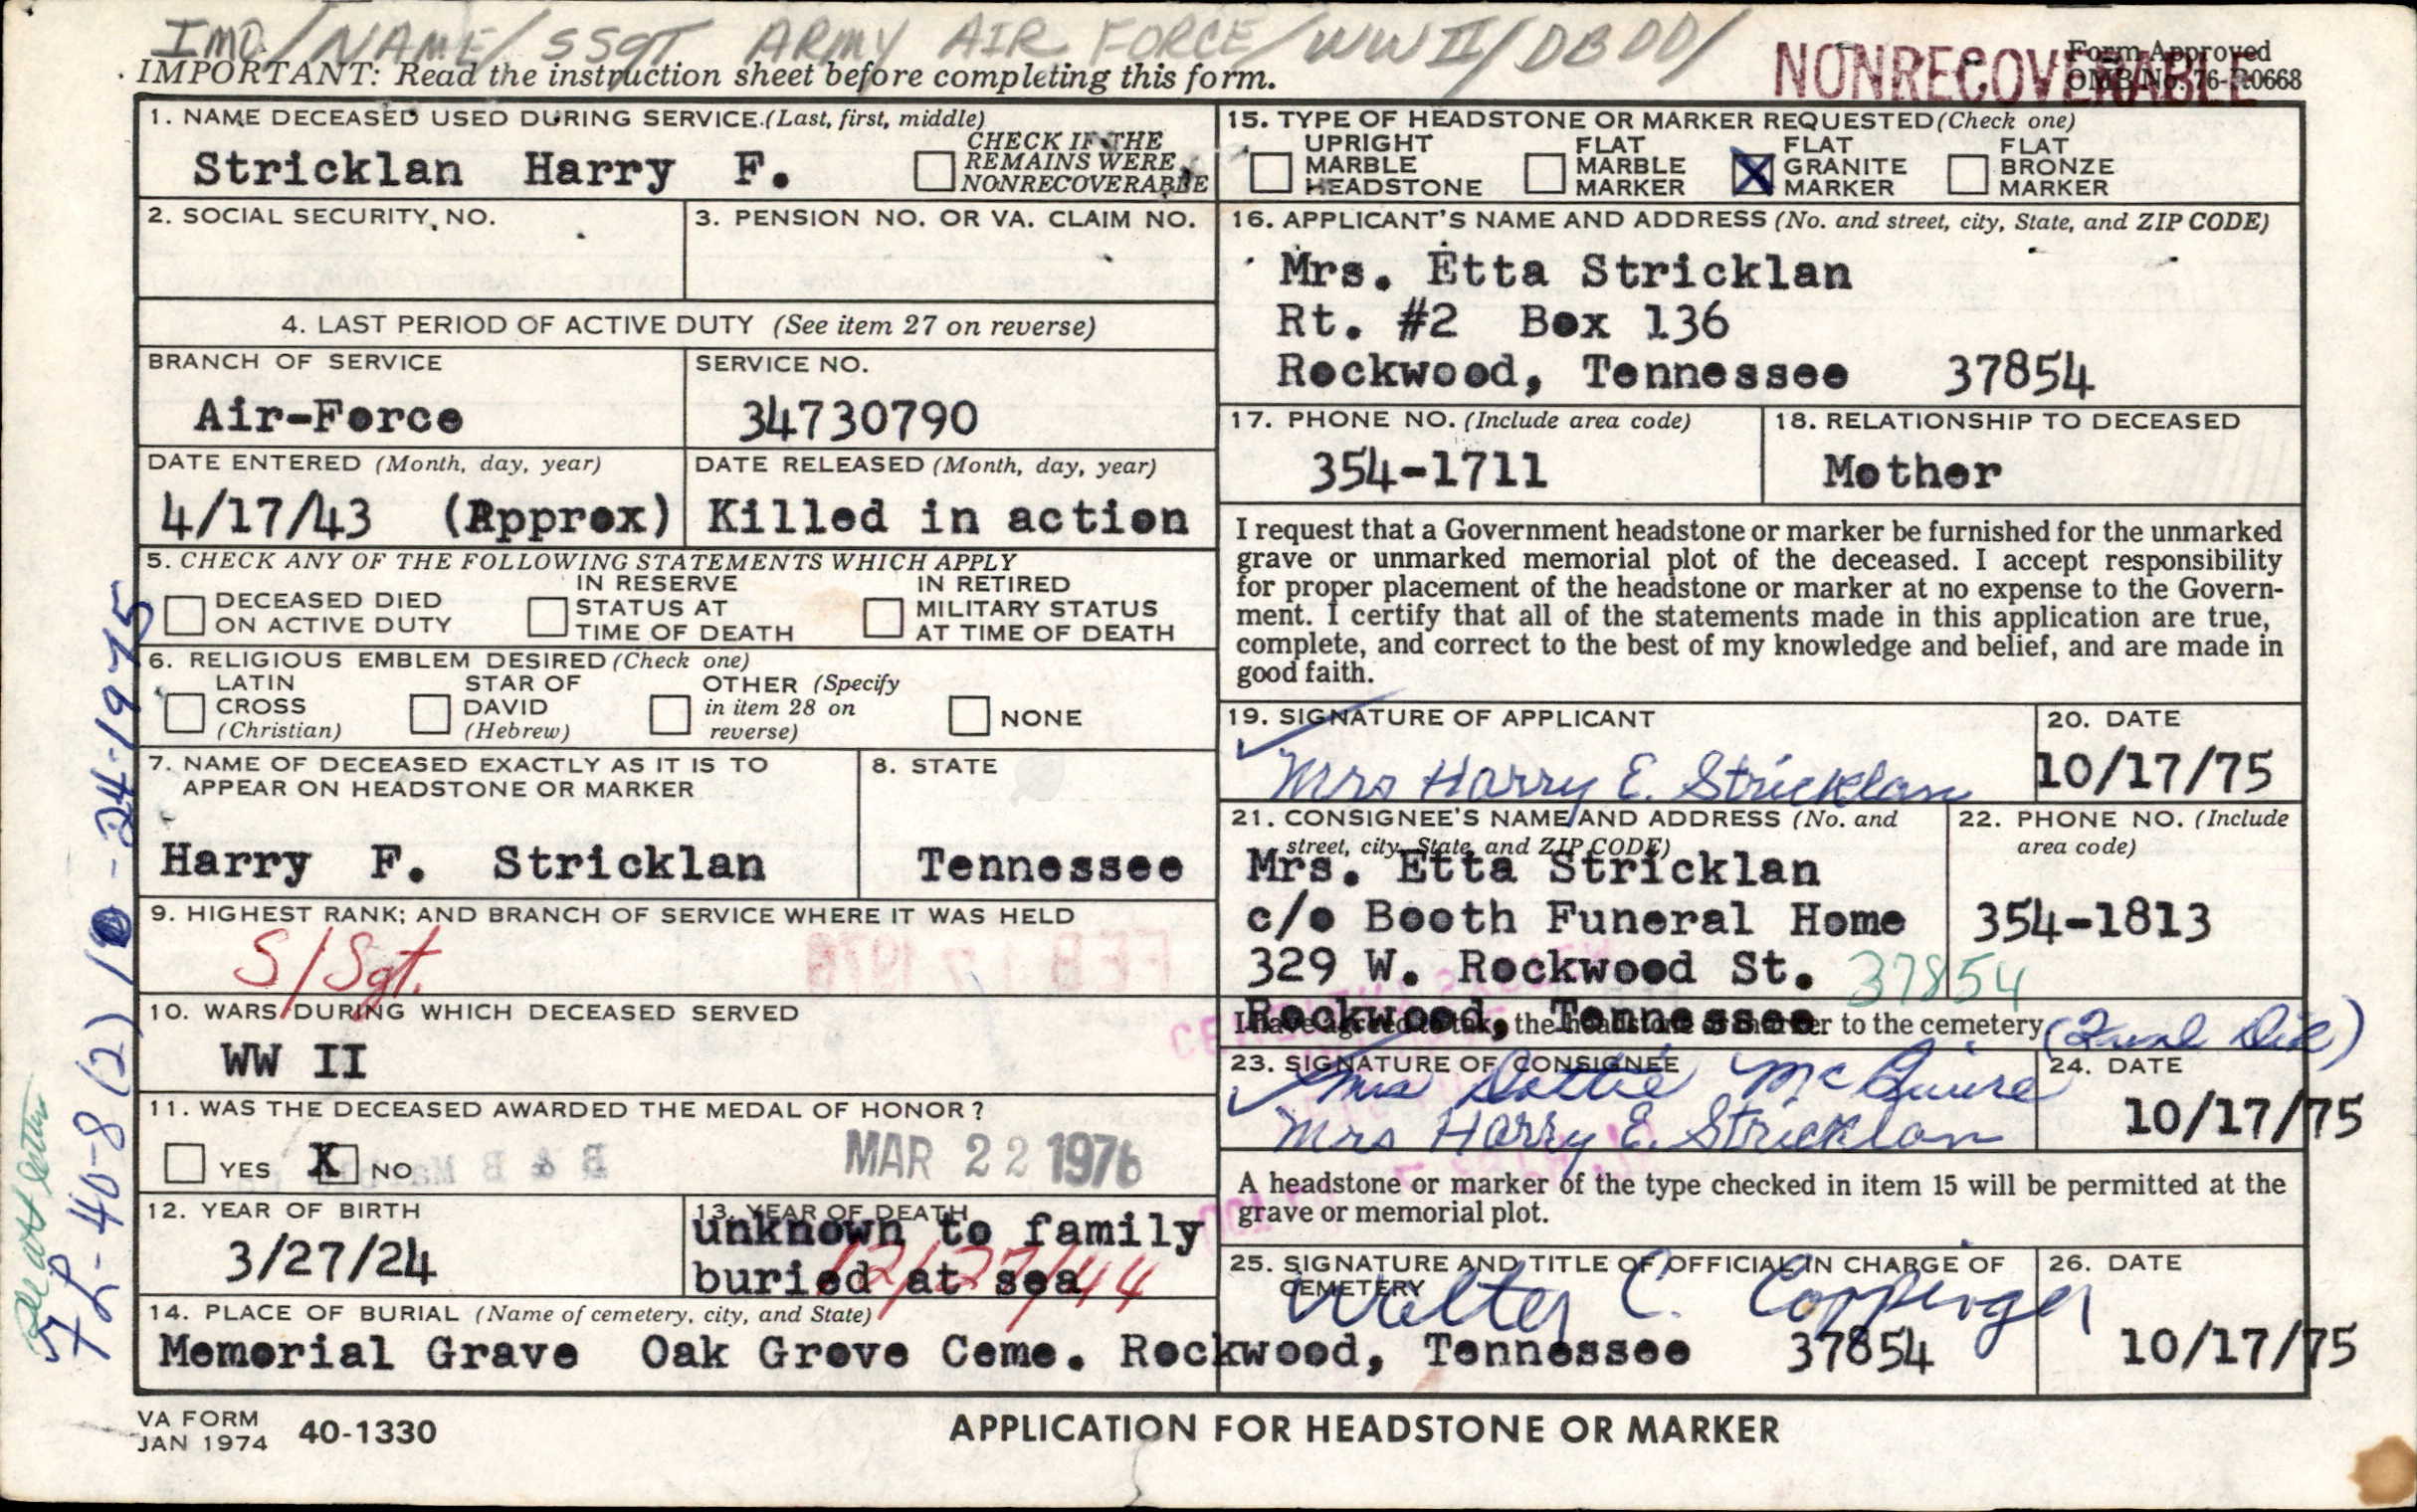 IMO/NAME/SSGT ARMY AIR FORCE/WWII/DB DD/
IMPORTANT: Read the instruction sheet before completing this form.
NONRECOVERABLE
Form Approved
OMB No. 76-R0668
1. NAME DECEASED USED DURING SERVICE (Last, first, middle)
Stricklan Harry F.
CHECK IF THE
REMAINS WERE
NONRECOVERABLE
2. SOCIAL SECURITY NO.
3. PENSION NO. OR VA. CLAIM NO.
4. LAST PERIOD OF ACTIVE DUTY (See item 27 on reverse)
BRANCH OF SERVICE
Air-Force
SERVICE NO.
34730790
DATE ENTERED (Month, day, year)
4/17/43 (Approx)
DATE RELEASED (Month, day, year)
Killed in action
5. CHECK ANY OF THE FOLLOWING STATEMENTS WHICH APPLY
DECEASED DIED
ON ACTIVE DUTY
IN RESERVE
STATUS AT
TIME OF DEATH
IN RETIRED
MILITARY STATUS
AT TIME OF DEATH
6. RELIGIOUS EMBLEM DESIRED (Check one)
LATIN
CROSS
(Christian)
STAR OF
DAVID
(Hebrew)
OTHER (Specify
in item 28 on
reverse)
NONE
7. NAME OF DECEASED EXACTLY AS IT IS TO
APPEAR ON HEADSTONE OR MARKER
Harry F. Stricklan
8. STATE
Tennessee
9. HIGHEST RANK; AND BRANCH OF SERVICE WHERE IT WAS HELD
S/Sgt.
FEB 17 1976
10. WARS DURING WHICH DECEASED SERVED
WW II
11. WAS THE DECEASED AWARDED THE MEDAL OF HONOR?
YES X NO
MAR 22 1976
12. YEAR OF BIRTH
3/27/24
13. YEAR OF DEATH
unknown to family
buried at sea
12/27/44
14. PLACE OF BURIAL (Name of cemetery, city, and State)
Memorial Grave Oak Grove Ceme. Rockwood, Tennessee 37854
15. TYPE OF HEADSTONE OR MARKER REQUESTED (Check one)
UPRIGHT
MARBLE
HEADSTONE
FLAT
MARBLE
MARKER
X
FLAT
GRANITE
MARKER
FLAT
BRONZE
MARKER
16. APPLICANT'S NAME AND ADDRESS (No. and street, city, State, and ZIP CODE)
Mrs. Etta Stricklan
Rt. #2 Box 136
Rockwood, Tennessee 37854
17. PHONE NO. (Include area code)
354-1711
18. RELATIONSHIP TO DECEASED
Mother
I request that a Government headstone or marker be furnished for the unmarked
grave or unmarked memorial plot of the deceased. I accept responsibility
for proper placement of the headstone or marker at no expense to the Govern-
ment. I certify that all of the statements made in this application are true,
complete, and correct to the best of my knowledge and belief, and are made in
good faith.
19. SIGNATURE OF APPLICANT
Mrs Harry E. Stricklan
20. DATE
10/17/75
21. CONSIGNEE'S NAME AND ADDRESS (No. and
street, city, State, and ZIP CODE)
Mrs. Etta Stricklan
c/o Booth Funeral Home
329 W. Rockwood St. 37854
Rockwood, Tennessee
22. PHONE NO. (Include
area code)
354-1813
I have agreed to take the headstone or marker to the cemetery
23. SIGNATURE OF CONSIGNEE
Mrs Dottie McGuire
Mrs Harry E. Stricklan
24. DATE
10/17/75
A headstone or marker of the type checked in item 15 will be permitted at the
grave or memorial plot.
25. SIGNATURE AND TITLE OF OFFICIAL IN CHARGE OF
CEMETERY
Walter C. Coppinger
26. DATE
10/17/75
VA FORM
JAN 1974 40-1330
APPLICATION FOR HEADSTONE OR MARKER
FL-40-8 (2) 10-24-1975